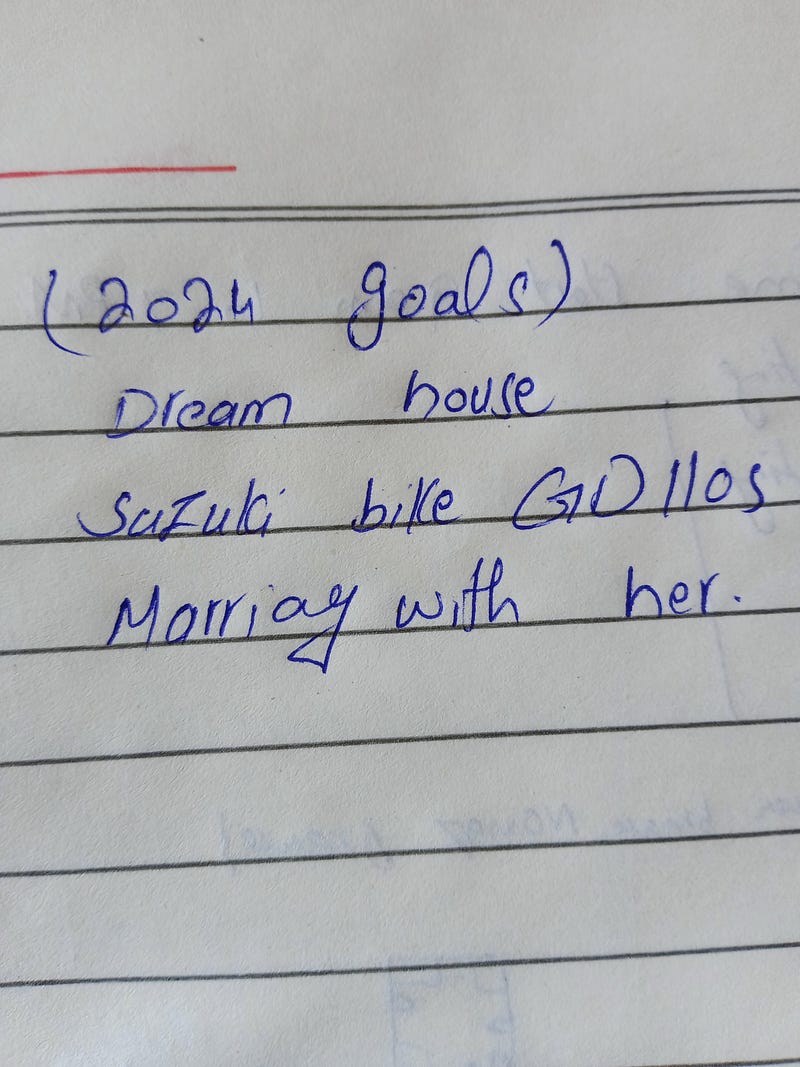 (2024 goals)
Dream house
Suzuki bike GD110s
Marriag with her.